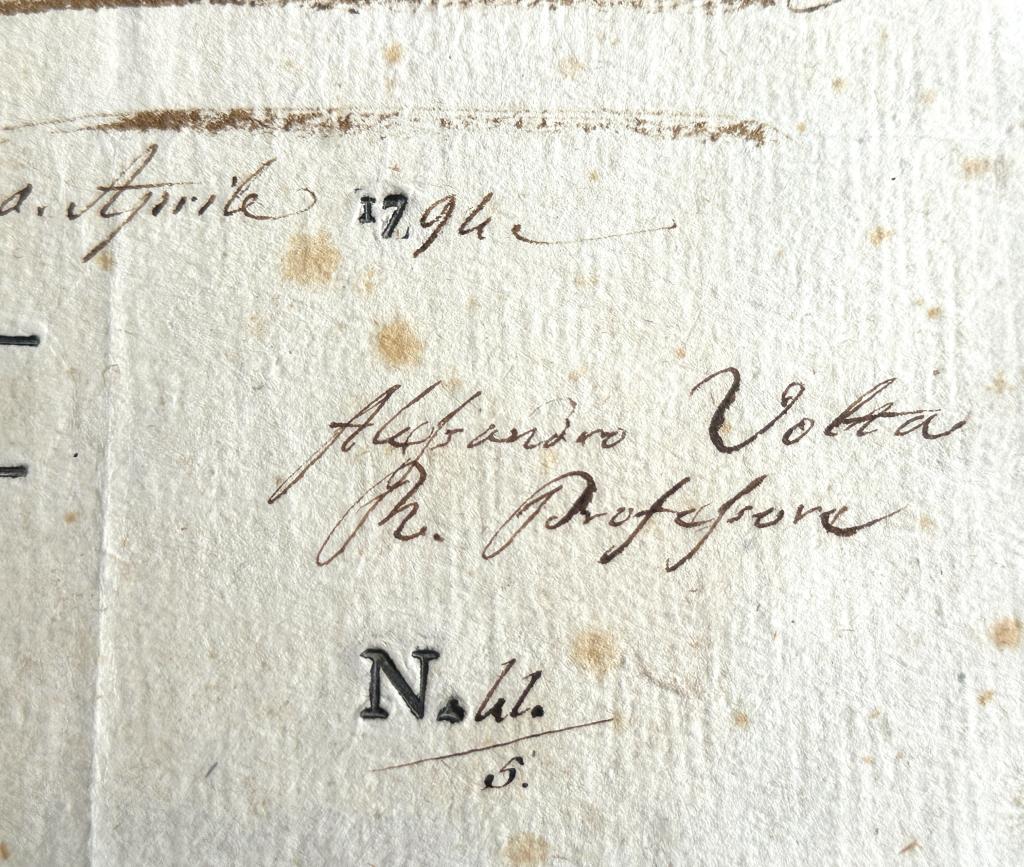 a. Aprile 1794.
Alessandro Volta
R. Professore
N. 41.
5.